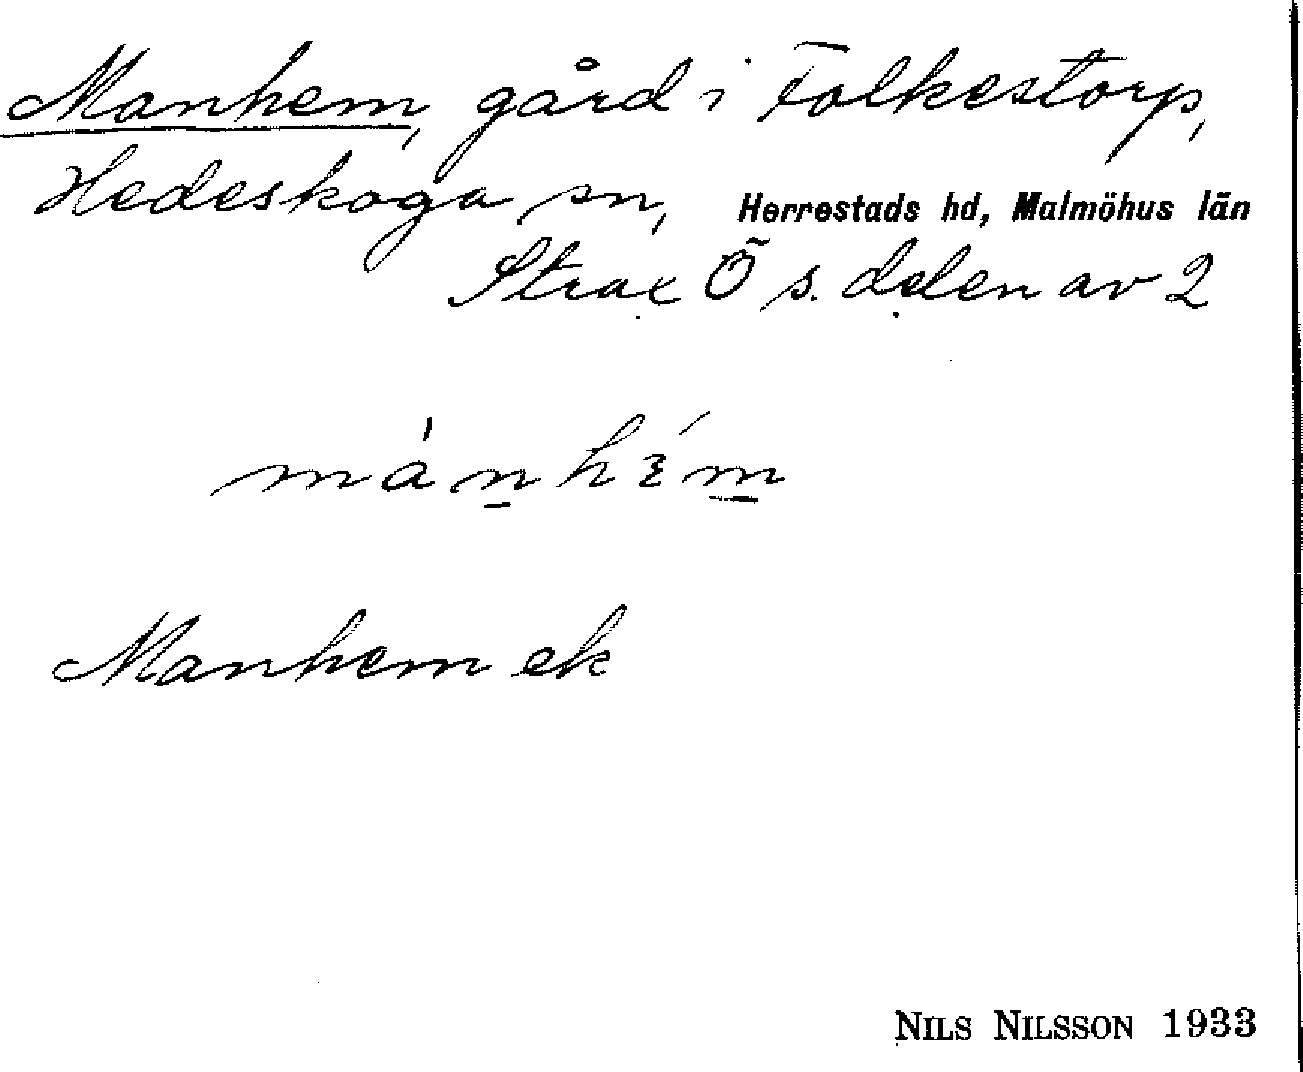 Manhem, gård i Folkestorp,
Hedeskoga sn, Herrestads hd, Malmöhus län
Strax Ö s. delen av 2
mànhɛ́m
Manhem ek
NILS NILSSON 1933